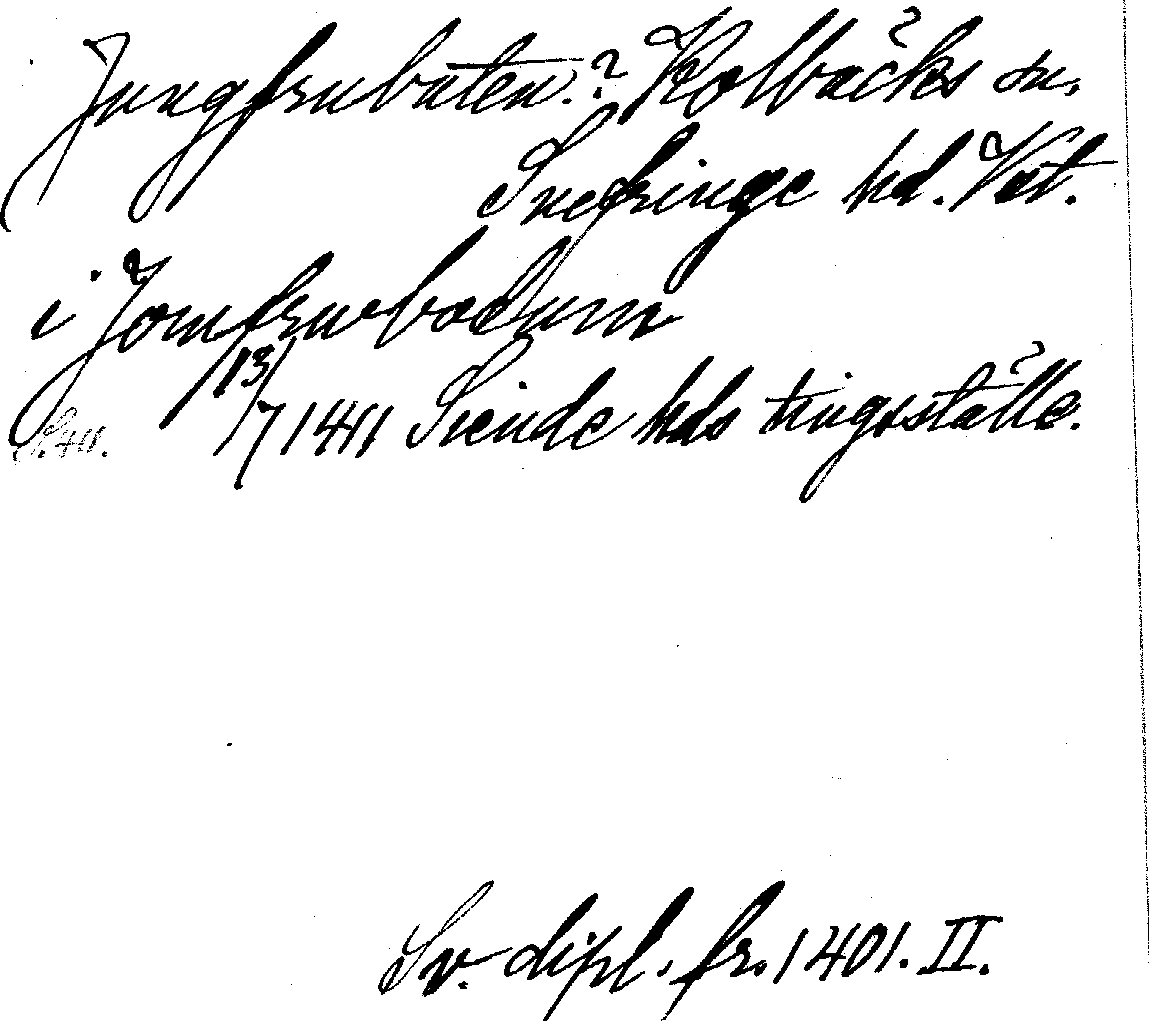 Jungfrubåten.? Kolbäcks sn.
Snefringe hd. Vst.
i Jomfrwbodum
13/7 1411 Siende hds tingsställe.
S. 411.
Sv. dipl. fr. 1401. II.